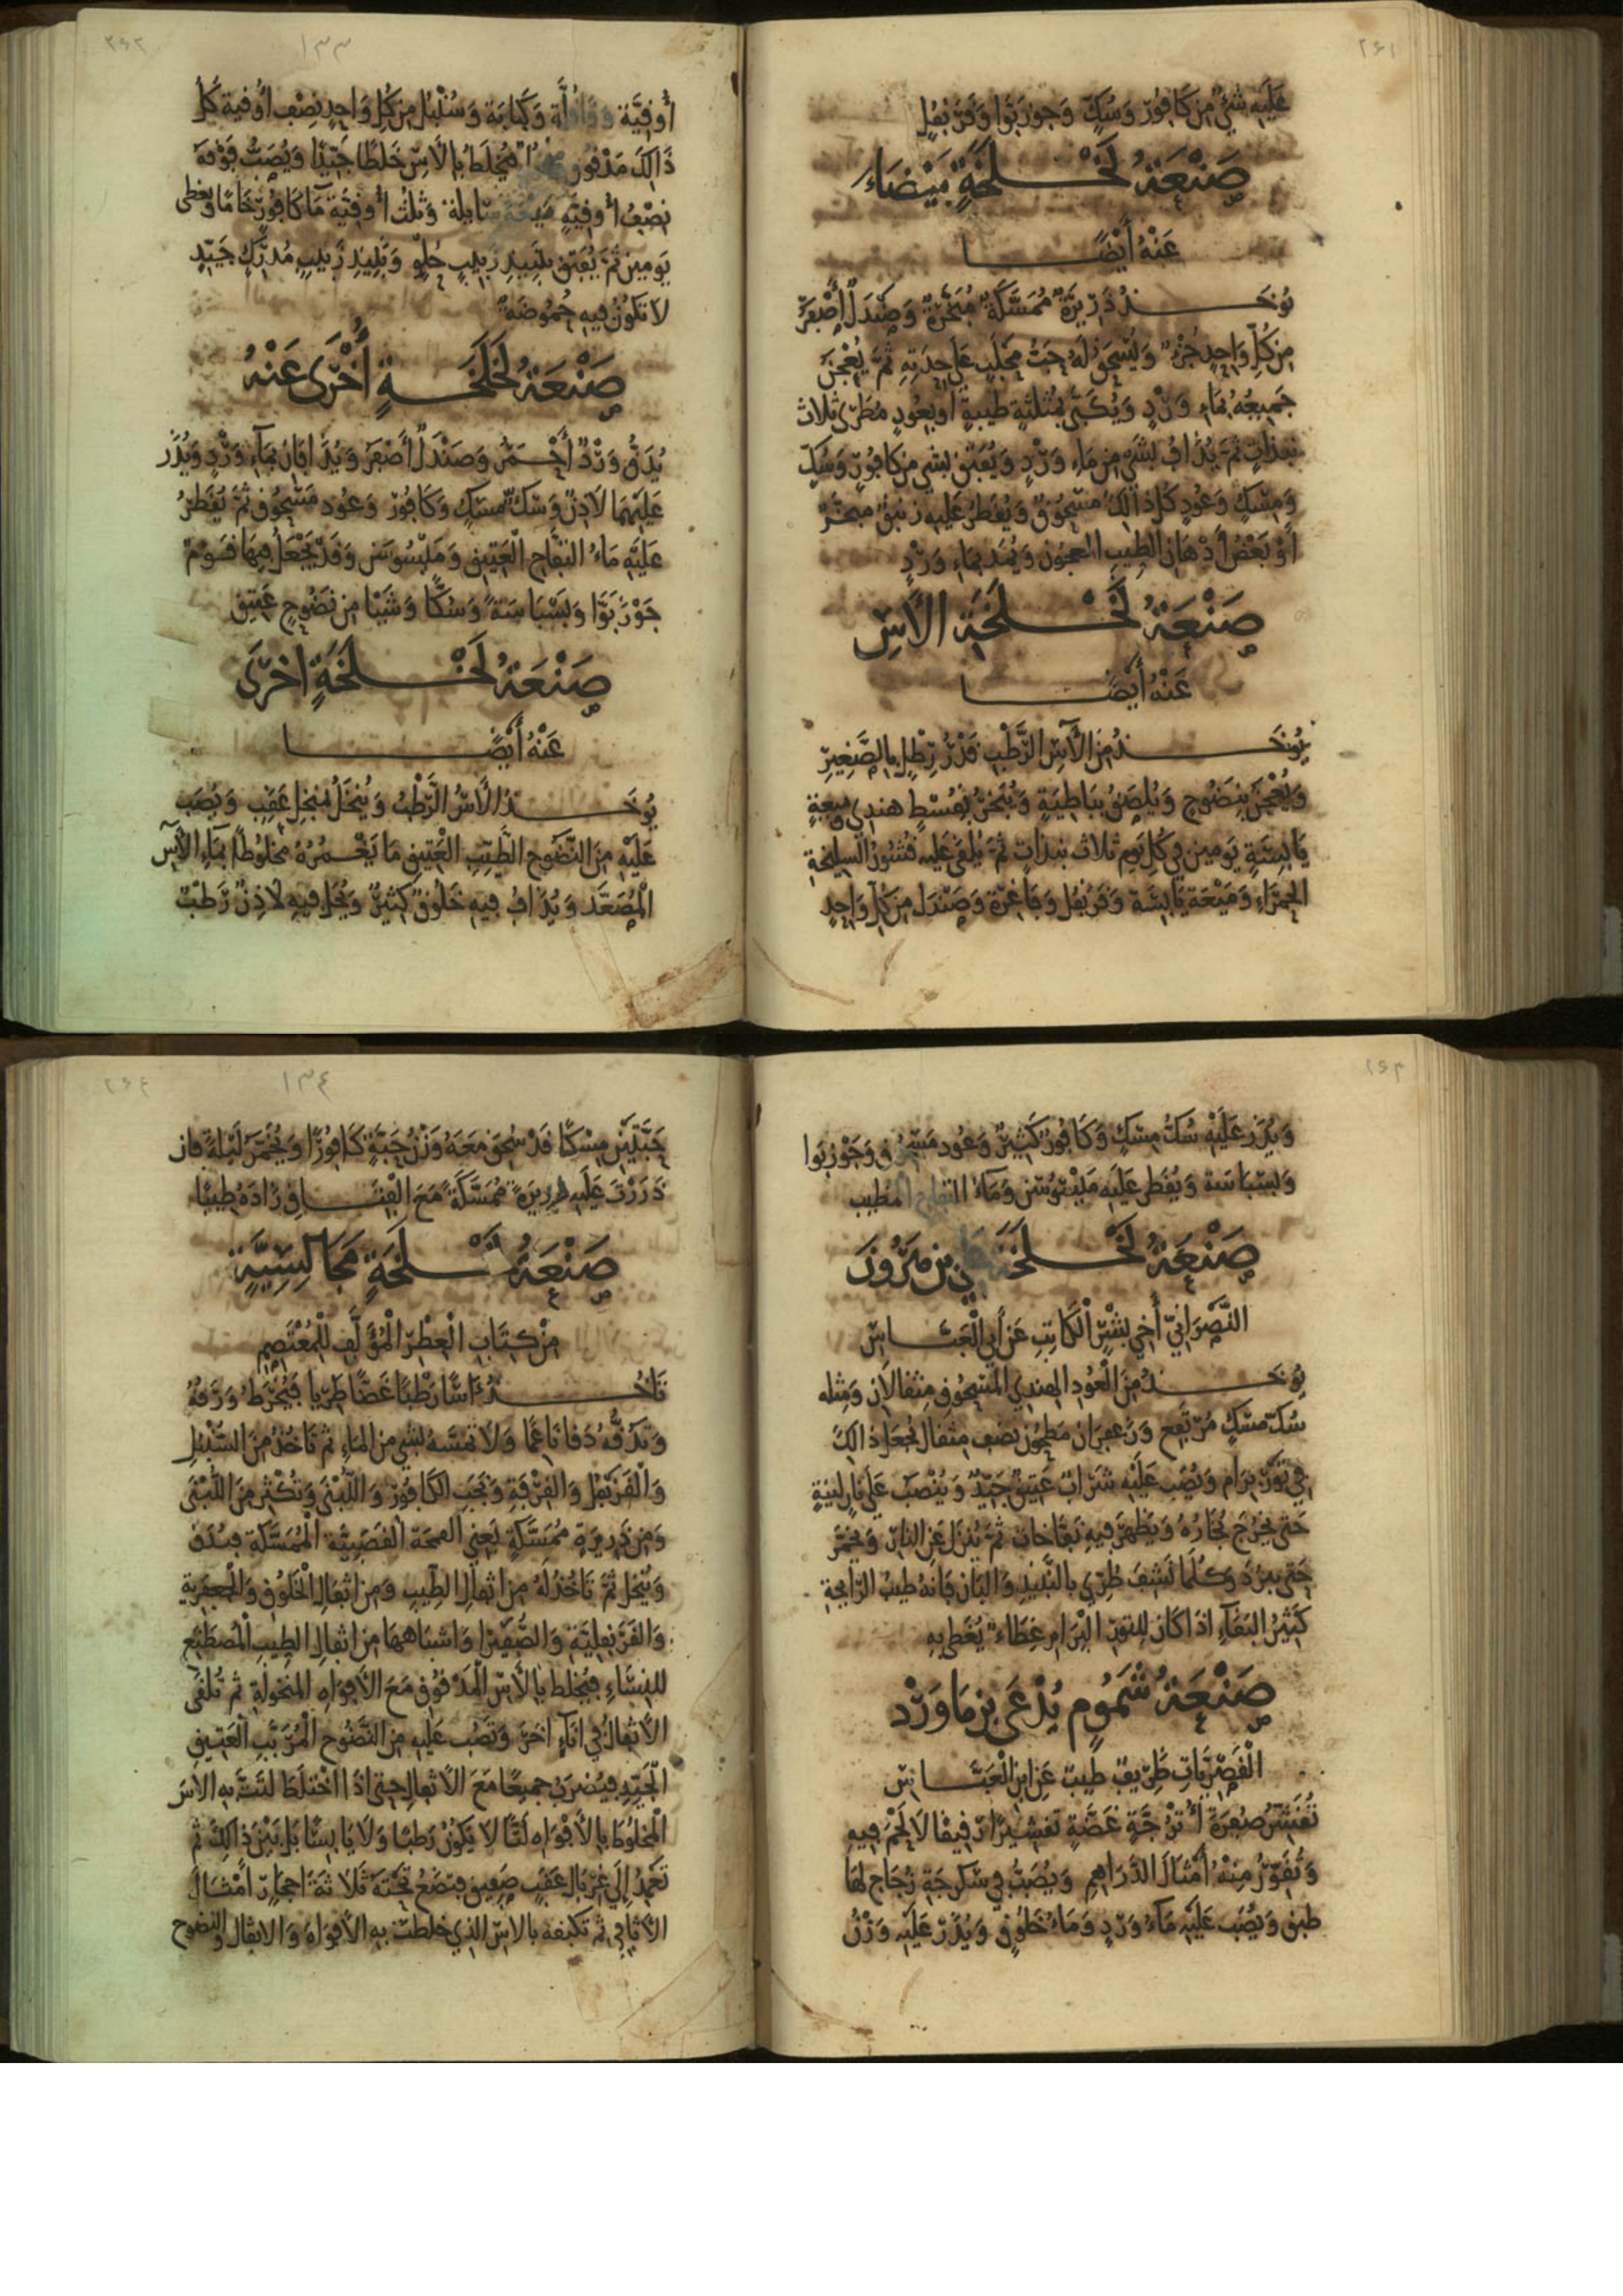 ٢٤١
عَلَيْهِ شَيْءٌ مِنْ كَافُورٍ وَسُكٍّ وَجَوْزَبَوَّا وَقَرَنْفُلٍ
صَنْعَةُ لَخْلَخَةٍ بَيْضَاءَ
عَنْهُ أَيْضًا
يُؤْخَذُ ذَرِيرَةٌ مُمَسَّكَةٌ مُبَخَّرَةٌ وَصَنْدَلٌ أَصْفَرُ
مِنْ كُلِّ وَاحِدٍ جُزْءٌ وَيُسْحَقُ لَهُ حَبُّ مَحْلَبٍ عَلَى حِدَتِهِ ثُمَّ يُعْجَنُ
جَمِيعُهُ بِمَاءِ وَرْدٍ وَيُكَبَّى بِمُثَلَّثَةٍ طَيِّبَةٍ أَوْ بِعُودٍ مُطَرًّى ثَلَاثَ
ثُمَّ يُذَافُ بِشَيْءٍ مِنْ مَاءِ وَرْدٍ وَيُفْتَقُ بِشَيْءٍ مِنْ كَافُورٍ وَسُكٍّ
وَمِسْكٍ وَعُودٍ كُلُّ ذَالِكَ مَسْحُوقٌ وَيُقْطَرُ عَلَيْهِ زَنْبَقٌ مُبَخَّرٌ
أَوْ بَعْضُ أَدْهَانِ الطِّيبِ الْمَعْجُونِ وَيُمَدُّ بِمَاءِ وَرْدٍ
صَنْعَةُ لَخْلَخَةِ الْآسِ
عَنْهُ أَيْضًا
يُؤْخَذُ مِنَ الْآسِ الرَّطْبِ قَدْرُ رِطْلٍ بِالصَّغِيرِ
وَيُعْجَنُ بِنَضُوحٍ وَيُلْصَقُ بِبَاطِيَةٍ وَيُبَخَّرُ بِقُسْطٍ هِنْدِيٍّ وَمَيْعَةٍ
يَابِسَةٍ يَوْمَيْنِ فِي كُلِّ يَوْمٍ ثَلَاثَ ثُمَّ يُلْقَى عَلَيْهِ قُشُورُ السَّلِيخَةِ
الْحَمْرَاءِ وَمَيْعَةٌ يَابِسَةٌ وَقَرَنْفُلٌ وَفَاغِرَةٌ وَصَنْدَلٌ مِنْ كُلِّ وَاحِدٍ
١٣٣
أُوقِيَّةٌ وَقَاقُلَّةٌ وَكَبَابَةٌ وَسُنْبُلٌ مِنْ كُلِّ وَاحِدٍ نِصْفُ أُوقِيَّةٍ كُلُّ
ذَالِكَ مَدْقُوقٌ يُخْلَطُ بِالْآسِ خَلْطًا جَيِّدًا وَيُصَبُّ فَوْقَهُ
نِصْفُ أُوقِيَّةٍ مَيْعَةً سَايِلَةً وَثُلُثُ أُوقِيَّةٍ مَاءَ كَافُورٍ خَامًا وَيُغَطَّى
يَوْمَيْنِ ثُمَّ يُفْتَقُ بِنَبِيذِ زَبِيبٍ حُلْوٍ وَنَبِيذِ زَبِيبٍ مُدْرِكٍ جَيِّدٍ
لَا تَكُونُ فِيهِ حُمُوضَةٌ
صَنْعَةُ لَخْلَخَةٍ أُخْرَى عَنْهُ
يُدَقُّ وَرْدٌ أَحْمَرُ وَصَنْدَلٌ أَصْفَرُ وَيُذَافَانِ بِمَاءِ وَرْدٍ وَيُذَرُّ
عَلَيْهِمَا لَاذَنٌ وَسُكُّ مِسْكٍ وَكَافُورٌ وَعُودٌ مَسْحُوقٌ ثُمَّ يُقْطَرُ
عَلَيْهِ مَاءُ التُّفَّاحِ الْعَتِيقِ وَمَيْسُوسَنٌ وَقَدْ يَجْعَلُ فِيهَا قَوْمٌ
جَوْزَبَوَّا وَبَسْبَاسَةً وَسُكًّا وَشَيْئًا مِنْ نَضُوحٍ عَتِيقٍ
صَنْعَةُ لَخْلَخَةٍ أُخْرَى
عَنْهُ أَيْضًا
يُؤْخَذُ الْآسُ الرَّطْبُ وَيُنْخَلُ بِمُنْخُلِ عَقَبٍ وَيُصَبُّ
عَلَيْهِ مِنَ النَّضُوحِ الطَّيِّبِ الْعَتِيقِ مَا يَغْمُرُهُ مَخْلُوطًا بِمَاءِ الْآسِ
الْمُصَعَّدِ وَيُذَافُ فِيهِ خَلُوقٌ كَثِيرٌ وَيُحَلُّ فِيهِ لَاذَنٌ رَطْبٌ
وَيُذَرُّ عَلَيْهِ سُكُّ مِسْكٍ وَكَافُورٌ كَثِيرٌ وَعُودٌ مَسْحُوقٌ وَجَوْزَبَوَّا
وَبَسْبَاسَةٌ وَيُقْطَرُ عَلَيْهِ مَيْسُوسَنٌ وَمَاءُ التُّفَّاحِ الْمُطَيَّبِ
صَنْعَةُ لَخْلَخَةِ بْنِ مَرْوُنَ
النَّصْرَانِيِّ أَخِي بِشْرٍ الْكَاتِبِ عَنْ أَبِي الْعَبَّاسِ
يُؤْخَذُ مِنَ الْعُودِ الْهِنْدِيِّ الْمَسْحُوقِ مِثْقَالَانِ وَمِثْلُهُ
سُكُّ مِسْكٍ مُرْتَفِعٍ وَزَعْفَرَانٌ مَطْحُونٌ نِصْفُ مِثْقَالٍ يُجْعَلُ ذَالِكَ
فِي تَوْرِ بِرَامٍ وَيُصَبُّ عَلَيْهِ شَرَابٌ عَتِيقٌ جَيِّدٌ وَيُنْصَبُ عَلَى نَارٍ لَيِّنَةٍ
حَتَّى يَخْرُجَ بُخَارُهُ وَيَظْهَرَ فِيهِ نُفَّاخَاتٌ ثُمَّ يُنْزَلُ عَنِ النَّارِ وَيُخَمَّرُ
حَتَّى يَبْرُدَ وَكُلَّمَا نَشِفَ طُرِّيَ بِالنَّبِيذِ وَالْبَانِ فَإِنَّهُ طَيِّبُ الرَّايِحَةِ
كَثِيرُ الْبَقَاءِ إِذَا كَانَ لِلتَّوْرِ الْبِرَامِ غِطَاءٌ يُغَطَّى بِهِ
صَنْعَةُ شَمُومٍ يُدْعَى بَزْمَاوَرْد
الْقَصْرِيَّاتِ ظَرِيفٌ طَيِّبٌ عَنِ ابْنِ الْعَبَّاسِ
تُقَشَّرُ صُفْرَةُ أُتْرُجَّةٍ غَضَّةٍ تَقْشِيرًا رَقِيقًا لَا لَحْمَ فِيهِ
وَتُقَوَّرُ مِنْهُ أَمْثَالَ الدَّرَاهِمِ وَيُصَبُّ فِي سُكْرُجَةِ زُجَاجٍ لَهَا
طَبَقٌ وَيُصَبُّ عَلَيْهِ مَاءُ وَرْدٍ وَمَاءُ خَلُوقٍ وَيُذَرُّ عَلَيْهِ وَزْنُ
١٣٤
حَبَّتَيْنِ مِسْكًا قَدْ سُحِقَ مَعَهُ وَزْنُ حَبَّةٍ كَافُورًا وَيُخَمَّرُ لَيْلَةً فَإِنْ
ذَرَرْتَ عَلَيْهِ ذَرِيرَةً مُمَسَّكَةً مَعَ الْفِتَاقِ زَادَهُ طِيبًا
صَنْعَةُ لَخْلَخَةٍ مَجَالِسِيَّةٍ
مِنْ كِتَابِ الْعِطْرِ الْمُؤَلَّفِ لِلْمُعْتَصِمِ
تَأْخُذُ آسًا رَطْبًا غَضًّا طَرِيًّا فَيُخْرَطُ وَرَقُهُ
وَتَدُقُّهُ دَقًّا نَاعِمًا وَلَا تَمَسَّهُ بِشَيْءٍ مِنَ الْمَاءِ ثُمَّ تَأْخُذُ مِنَ السُّنْبُلِ
وَالْقَرَنْفُلِ وَالْقِرْفَةِ وَتَجَنَّبِ الْكَافُورَ وَاللُّبْنَى وَتُكْثِرُ مِنَ اللُّبْنَى
وَمِنْ ذَرِيرَةٍ مُمَسَّكَةٍ يَعْنِي الْقَصَبِيَّةَ الْمُمَسَّكَةَ فَيُدَقُّ
وَيُنْخَلُ ثُمَّ تَأْخُذُ لَهُ مِنْ أَثْفَالِ الطِّيبِ وَمِنْ أَثْفَالِ الْخَلُوقِ وَالْجَعْفَرِيَّةِ
وَالْقَرَنْفُلِيَّةِ وَالصُّفَيْرَا وَأَشْبَاهِهَا مِنْ أَثْفَالِ الطِّيبِ الْمُصْطَنَعِ
لِلنِّسَاءِ فَيُخْلَطُ بِالْآسِ الْمَدْقُوقِ مَعَ الْأَفْوَاهِ الْمَنْخُولَةِ ثُمَّ تُلْقَى
الْأَثْفَالُ فِي إِنَاءٍ آخَرَ وَتُصَبُّ عَلَيْهِ مِنَ النَّضُوحِ الْمُرَتَّبِ الْعَتِيقِ
الْجَيِّدِ فَيُضْرَبُ جَمِيعًا مَعَ الْأَثْفَالِ حَتَّى إِذَا اخْتَلَطَ لَتَتَّ بِهِ الْآسَ
الْمَخْلُوطَ بِالْأَفْوَاهِ لَتًّا لَا يَكُونُ رَطْبًا وَلَا يَابِسًا بَلْ بَيْنَ ذَالِكَ ثُمَّ
تَعْمِدُ إِلَى غِرْبَالِ عَقَبٍ صَفِيقٍ فَتَضَعُ تَحْتَهُ ثَلَاثَةَ أَحْجَارٍ أَمْثَالَ
الْأَثَافِي ثُمَّ بِالْآسِ الَّذِي خَلَطْتَ بِهِ الْأَفْوَاهَ وَالْأَثْفَالَ وَالنَّضُوحَ